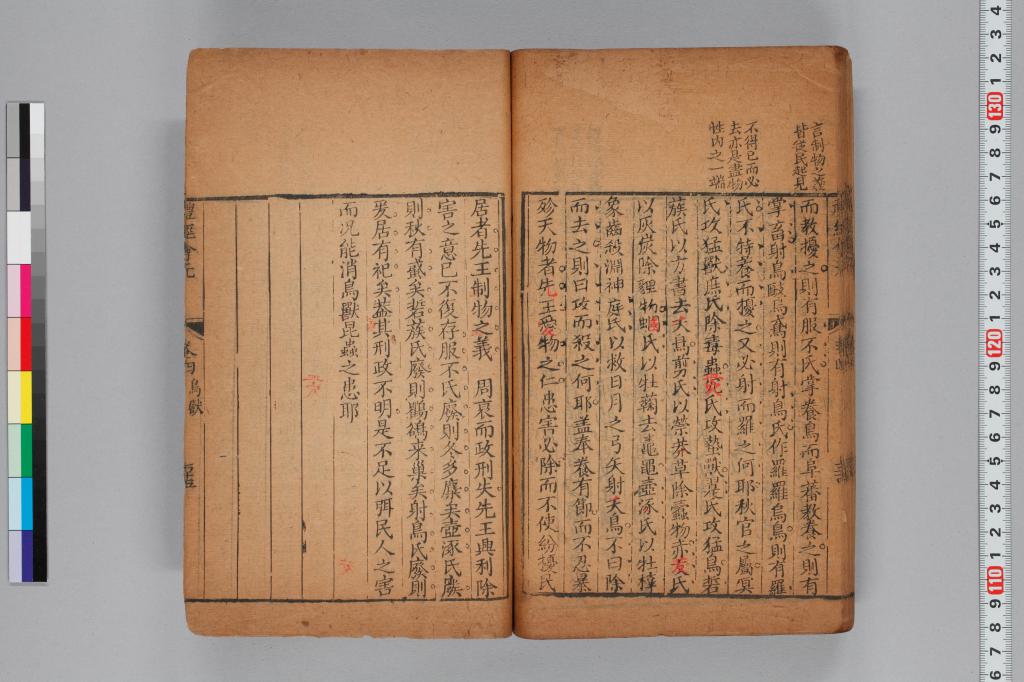 言制物之義
皆使民起見
不得已而必
去亦是盡物
性內之一端
而教擾之則有服不氏掌養鳥而阜蕃教養之則有
掌畜射鳥敺烏鳶則有射鳥氏作羅羅烏鳥則有羅
氏不特養而擾之又必射而羅之何耶秋官之屬冥
氏攻猛獸庶氏除毒蟲穴氏攻蟄獸翨氏攻猛鳥硩
蔟氏以方書去夭鳥剪氏以禜莽草除蠹物赤犮氏
以灰炭除貍物蟈氏以牡蘜去鼃黽壺涿氏以牡橭
象齒殺淵神庭氏以救日月之弓矢射夭鳥不曰除
而去之則曰攻而殺之何耶盖奉養有節而不忍暴
殄天物者先王愛物之仁患害必除而不使紛擾民
居者先王制物之義 周衰而政刑失先王典利除
害之意已不復存服不氏廢則冬多麋矣壺涿氏廢
則秋有蜮矣硩蔟氏廢則鸜鵒来巢矣射鳥氏廢則
爰居有祀矣葢其刑政不明是不足以弭民人之害
而况能消鳥獸昆蟲之患耶
禮經會元
卷四鳥獸